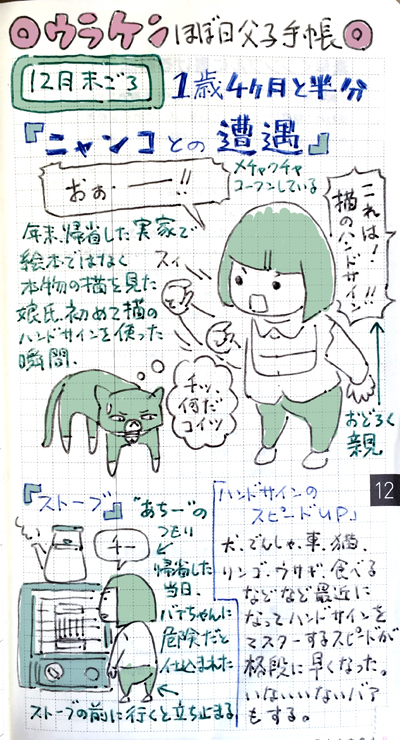 ◎ウラケン ほぼ日父子手帳◎
12月末ごろ
1歳4ヶ月と半分
『ニャンコとの遭遇』
おぉ・ーー!!
メチャクチャ
コーフンしている
これは!!
猫のハンドサイン
年末、帰省した実家で
絵本ではなく
本物の猫を見た
娘氏。初めて猫の
ハンドサインを使った
瞬間。
スィ
チッ、
何だ
コイツ
おどろく
親
12
『ストーブ』
"あちー"の
つもり
チー
帰省した
当日、
バアちゃんに
危険だと
仕込まれた
ストーブの前に行くと立ち止まる
「ハンドサインの
スピードUP」
犬、でんしゃ、車、猫、
リンゴ、ウサギ、食べる
などなど最近に
なってハンドサインを
マスターするスピードが
格段に早くなった。
いないいないバァ
もする。